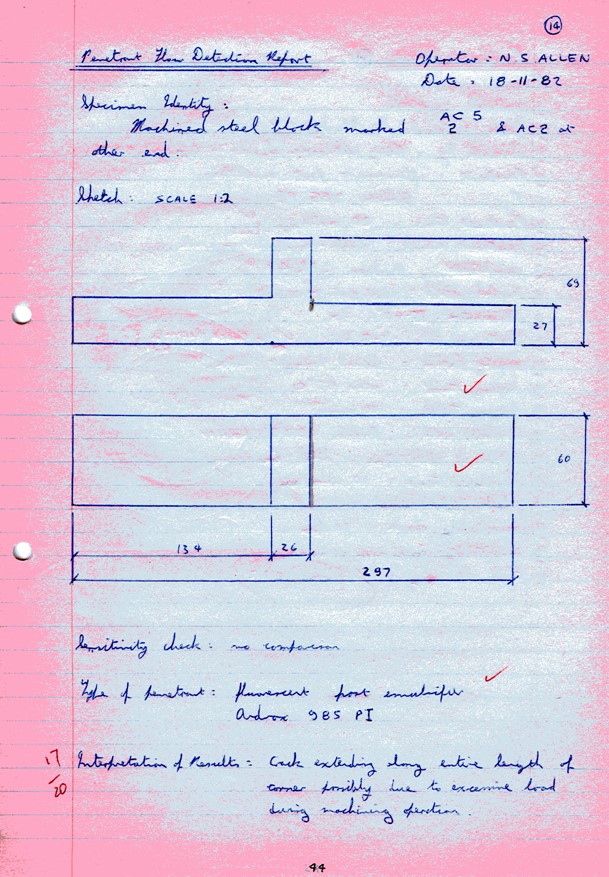 14
Penetrant Flaw Detection Report
Operator : N. S. ALLEN
Date : 18-11-82
Specimen Identity :
Machined steel block marked AC 5
2 & AC2 at
other end.
Sketch : SCALE 1:2
69
27
60
134
26
297
Sensitivity check : no comparison
Type of penetrant : fluorescent post emulsifier
Ardrox 985 PI
17
/20
Interpretation of Results = Crack extending along entire length of
corner possibly due to excessive load
during machining operation.
44